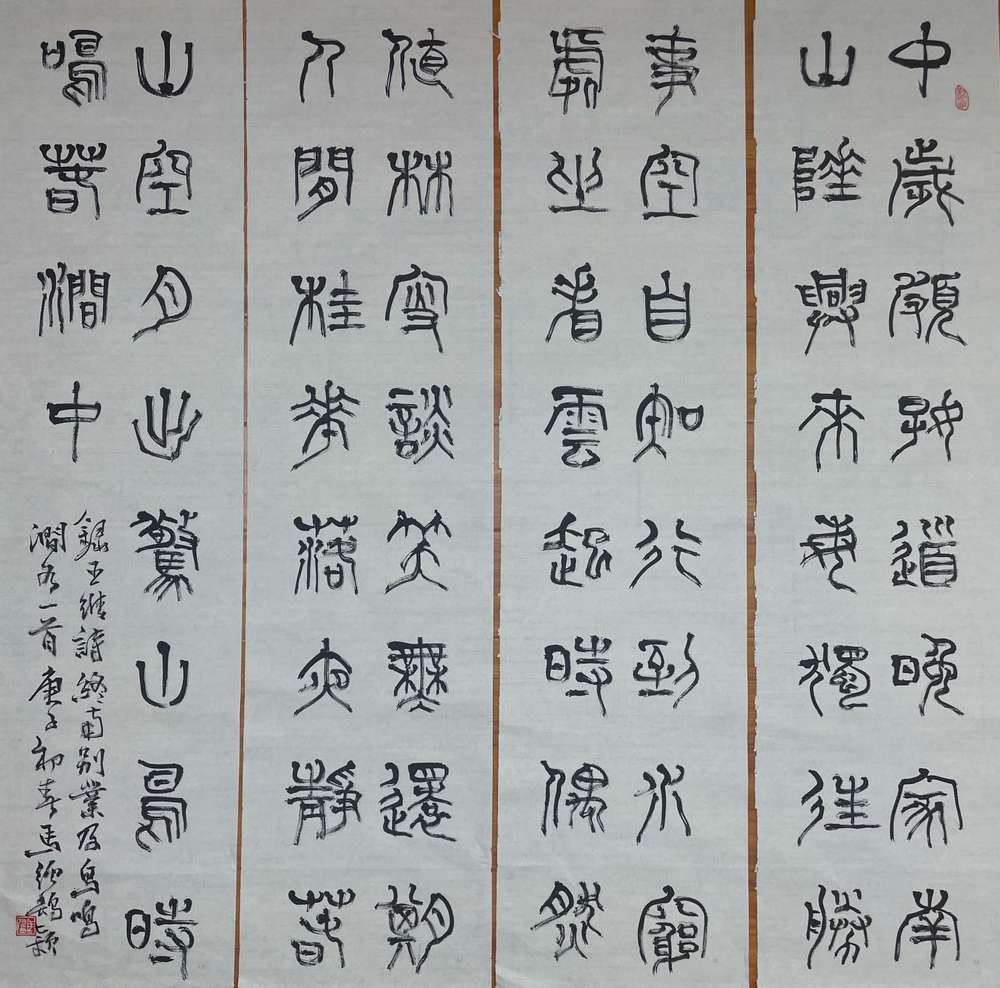 中歲頗好道晚家南
山陲興來每獨往勝
事空自知行到水窮
處坐看雲起時偶然
值林叟談笑無還期
人閒桂花落夜靜春
山空月出驚山鳥時
鳴春澗中
錄王維詩終南別業及鳥鳴
澗各一首庚子初春馬